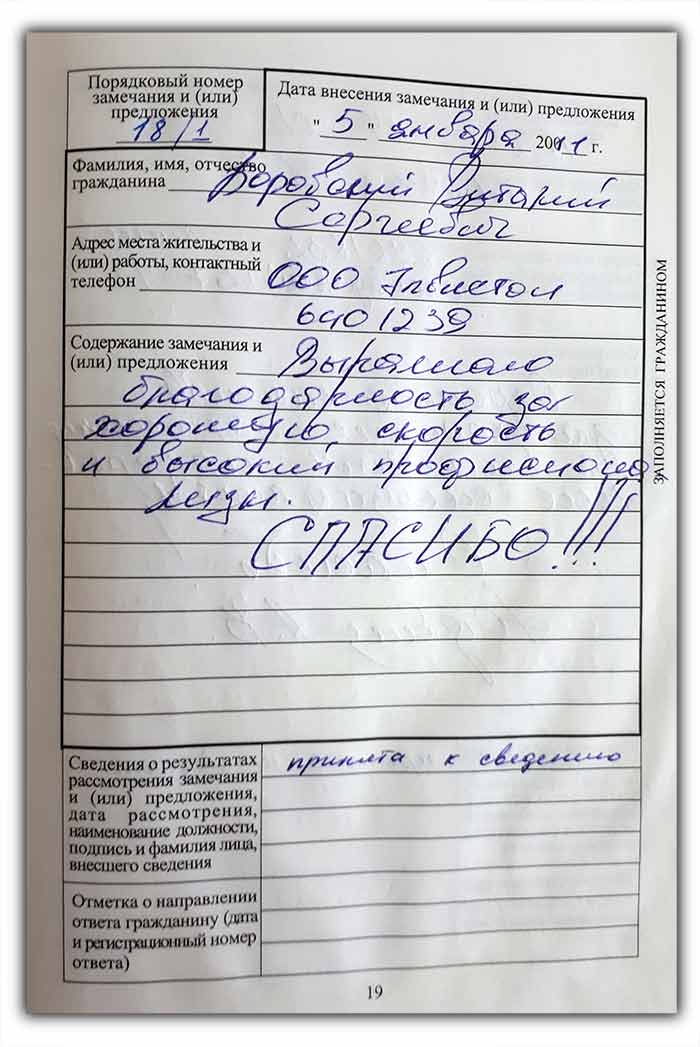 Порядковый номер
замечания и (или)
предложения
18/1
Дата внесения замечания и (или) предложения
" 5 " января 2011 г.
Фамилия, имя, отчество
гражданина Боровский Виталий
Сергеевич
Адрес места жительства и
(или) работы, контактный
телефон ООО
6401239
Содержание замечания и
(или) предложения Выражаю
благодарность за
хорошую, скорость
и высокий профисиона
лизм.
СПАСИБО!!!
ЗАПОЛНЯЕТСЯ ГРАЖДАНИНОМ
Сведения о результатах
рассмотрения замечания
и (или) предложения,
дата рассмотрения,
наименование должности,
подпись и фамилия лица,
внесшего сведения
принята к сведению
Отметка о направлении
ответа гражданину (дата
и регистрационный номер
ответа)
19